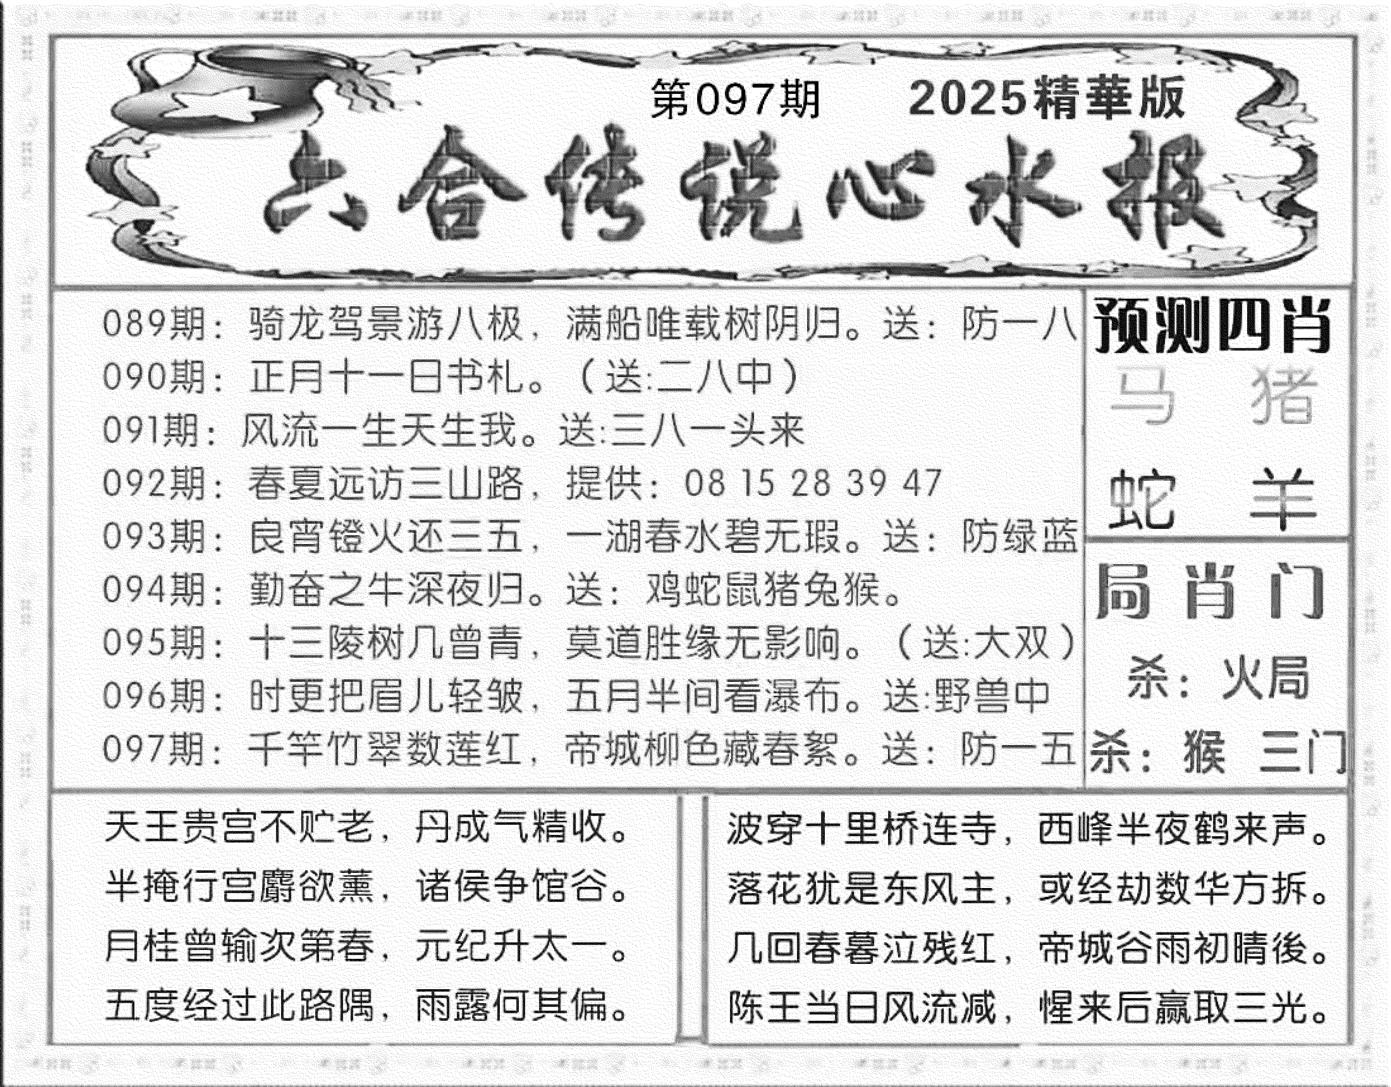 第097期 2025精華版
六合传说心水报
089期：骑龙驾景游八极，满船唯载树阴归。送：防一八
090期：正月十一日书札。（送:二八中）
091期：风流一生天生我。送:三八一头来
092期：春夏远访三山路，提供：08 15 28 39 47
093期：良宵镫火还三五，一湖春水碧无瑕。送：防绿蓝
094期：勤奋之牛深夜归。送：鸡蛇鼠猪兔猴。
095期：十三陵树几曾青，莫道胜缘无影响。（送:大双）
096期：时更把眉儿轻皱，五月半间看瀑布。送:野兽中
097期：千竿竹翠数莲红，帝城柳色藏春絮。送：防一五
预测四肖
马 猪
蛇 羊
局肖门
杀：火局
杀：猴 三门
天王贵宫不贮老，丹成气精收。
半掩行宫麝欲薰，诸侯争馆谷。
月桂曾输次第春，元纪升太一。
五度经过此路隅，雨露何其偏。
波穿十里桥连寺，西峰半夜鹤来声。
落花犹是东风主，或经劫数华方拆。
几回春暮泣残红，帝城谷雨初晴後。
陈王当日风流减，惺来后赢取三光。